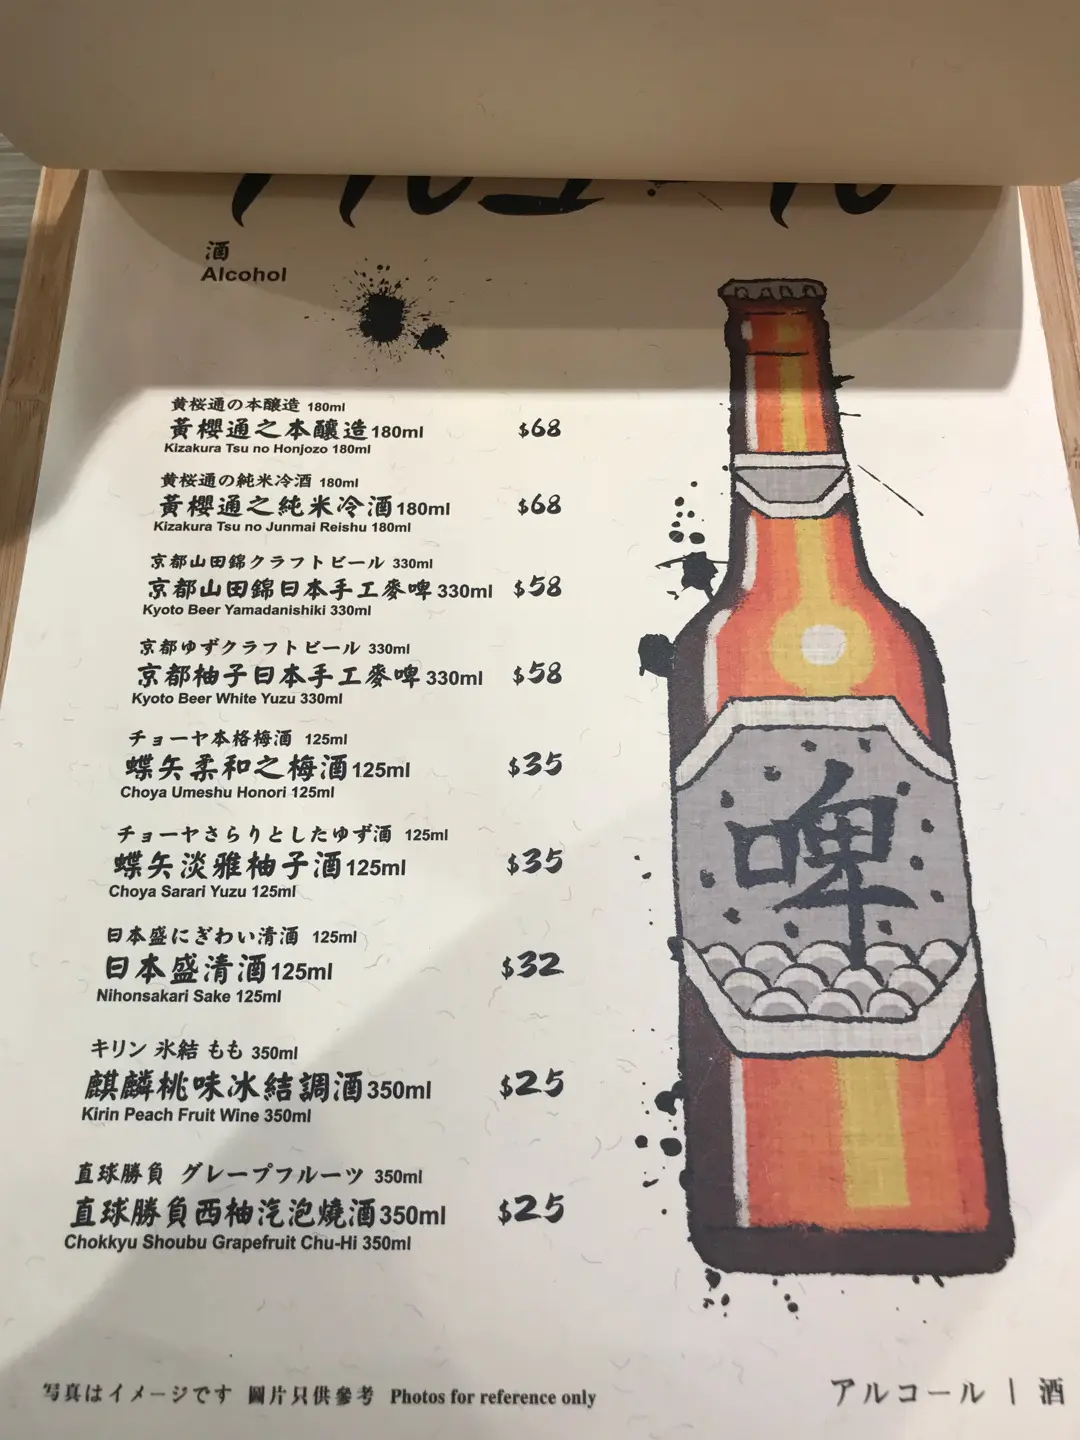 酒
Alcohol
黄桜通の本醸造 180ml
黃櫻通之本釀造180ml $68
Kizakura Tsu no Honjozo 180ml
黄桜通の純米冷酒 180ml
黃櫻通之純米冷酒180ml $68
Kizakura Tsu no Junmai Reishu 180ml
京都山田錦クラフトビール 330ml
京都山田錦日本手工麥啤330ml $58
Kyoto Beer Yamadanishiki 330ml
京都ゆずクラフトビール 330ml
京都柚子日本手工麥啤330ml $58
Kyoto Beer White Yuzu 330ml
チョーヤ本格梅酒 125ml
蝶矢柔和之梅酒125ml $35
Choya Umeshu Honori 125ml
チョーヤさらりとしたゆず酒 125ml
蝶矢淡雅柚子酒125ml $35
Choya Sarari Yuzu 125ml
日本盛にぎわい清酒 125ml
日本盛清酒125ml $32
Nihonsakari Sake 125ml
キリン 氷結 もも 350ml
麒麟桃味冰結調酒350ml $25
Kirin Peach Fruit Wine 350ml
直球勝負 グレープフルーツ 350ml
直球勝負西柚汽泡燒酒350ml $25
Chokkyu Shoubu Grapefruit Chu-Hi 350ml
啤
写真はイメージです 圖片只供參考 Photos for reference only
アルコール | 酒